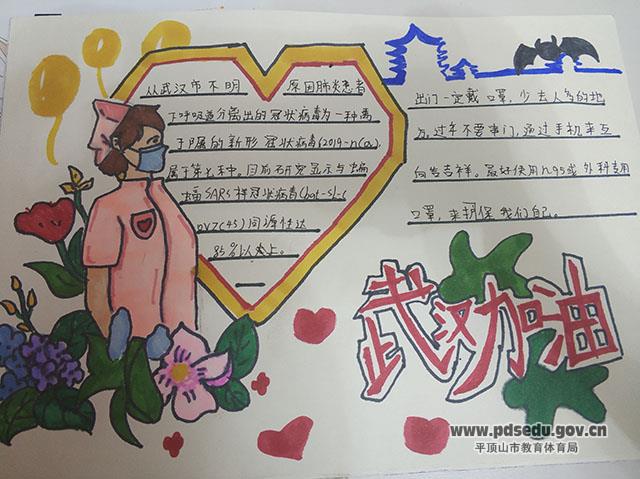 从武汉市不明 原因肺炎患者
下呼吸道分离出的冠状病毒为一种属
于β属的新形冠状病毒(2019-nCoV),
属于第七种。目前研究显示与蝙
蝠SARS样冠状病毒(bat-SL-C
oVZC45)同源性达
85%以上。
出门一定戴口罩,少去人多的地
方,过年不要串门,通过手机来互
向传吉祥。最好使用n95或外科专用
口罩,来担保我们自己。
武汉加油
www.pdsedu.gov.cn
平顶山市教育体育局